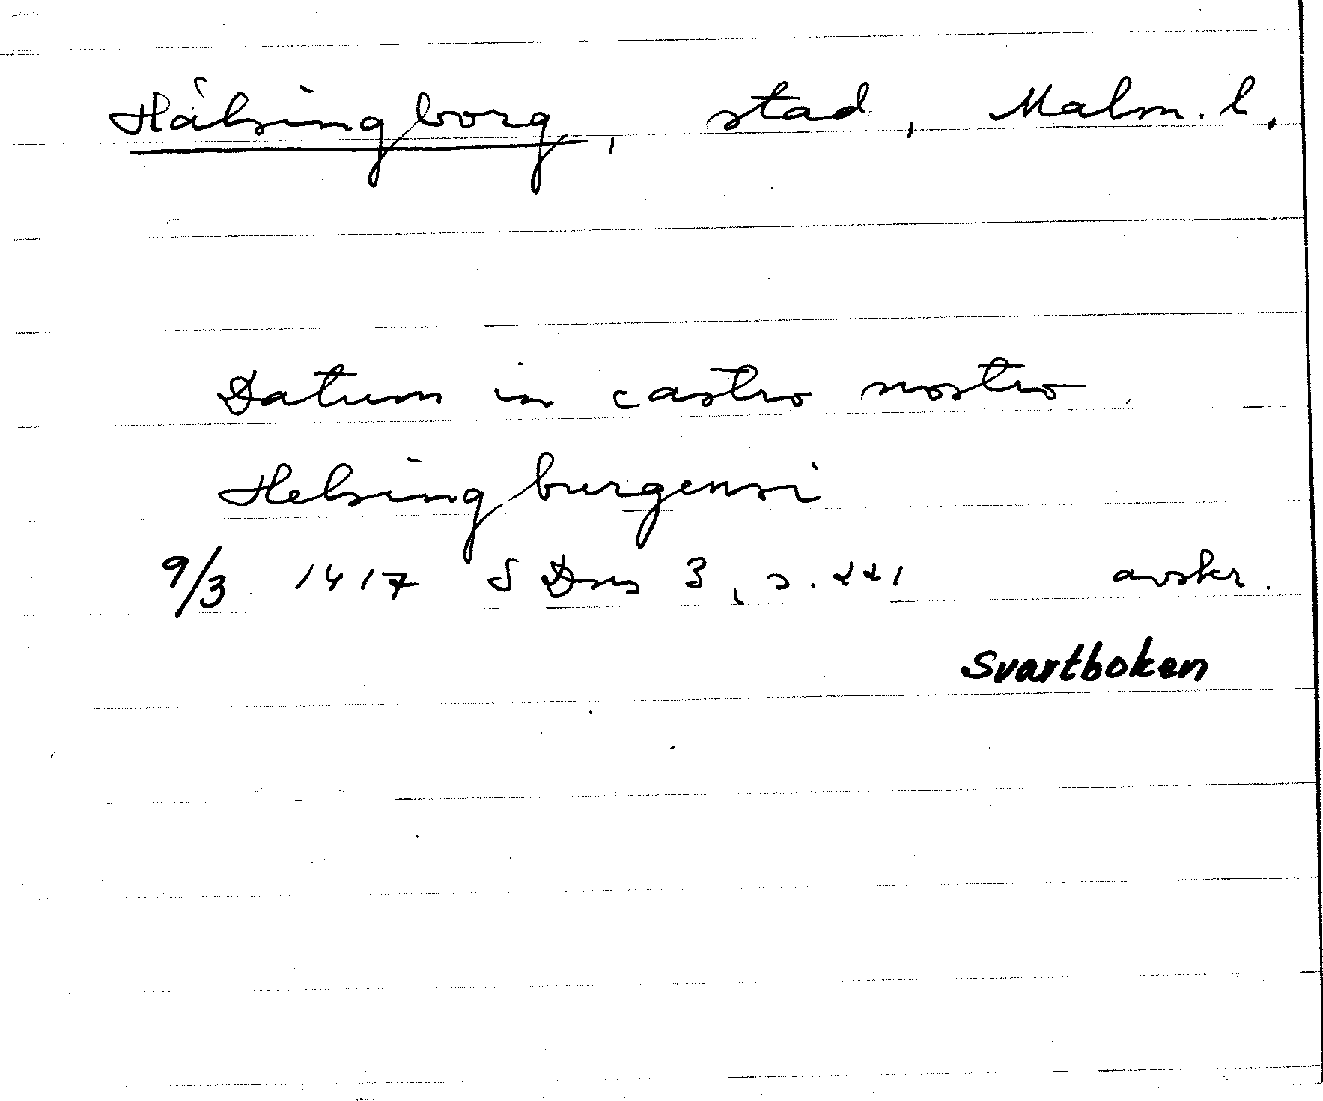 Hälsingborg, stad, Malm. l.
Datum in castro nostro
Helsingburgensi
9/3 1417 SDns 3, s. 221 avskr.
Svartboken